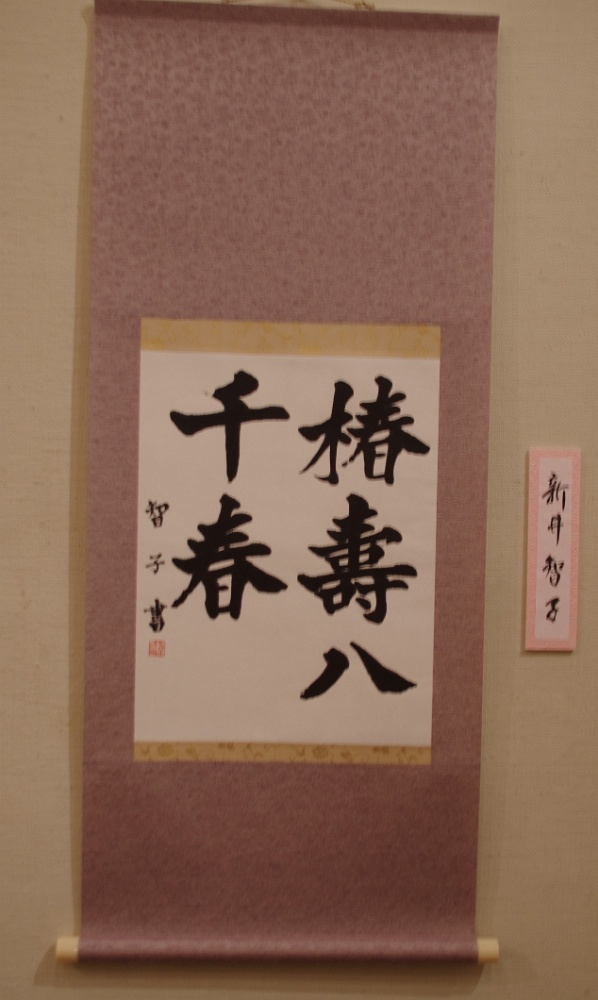 椿壽八
千春
智子書
新井智子